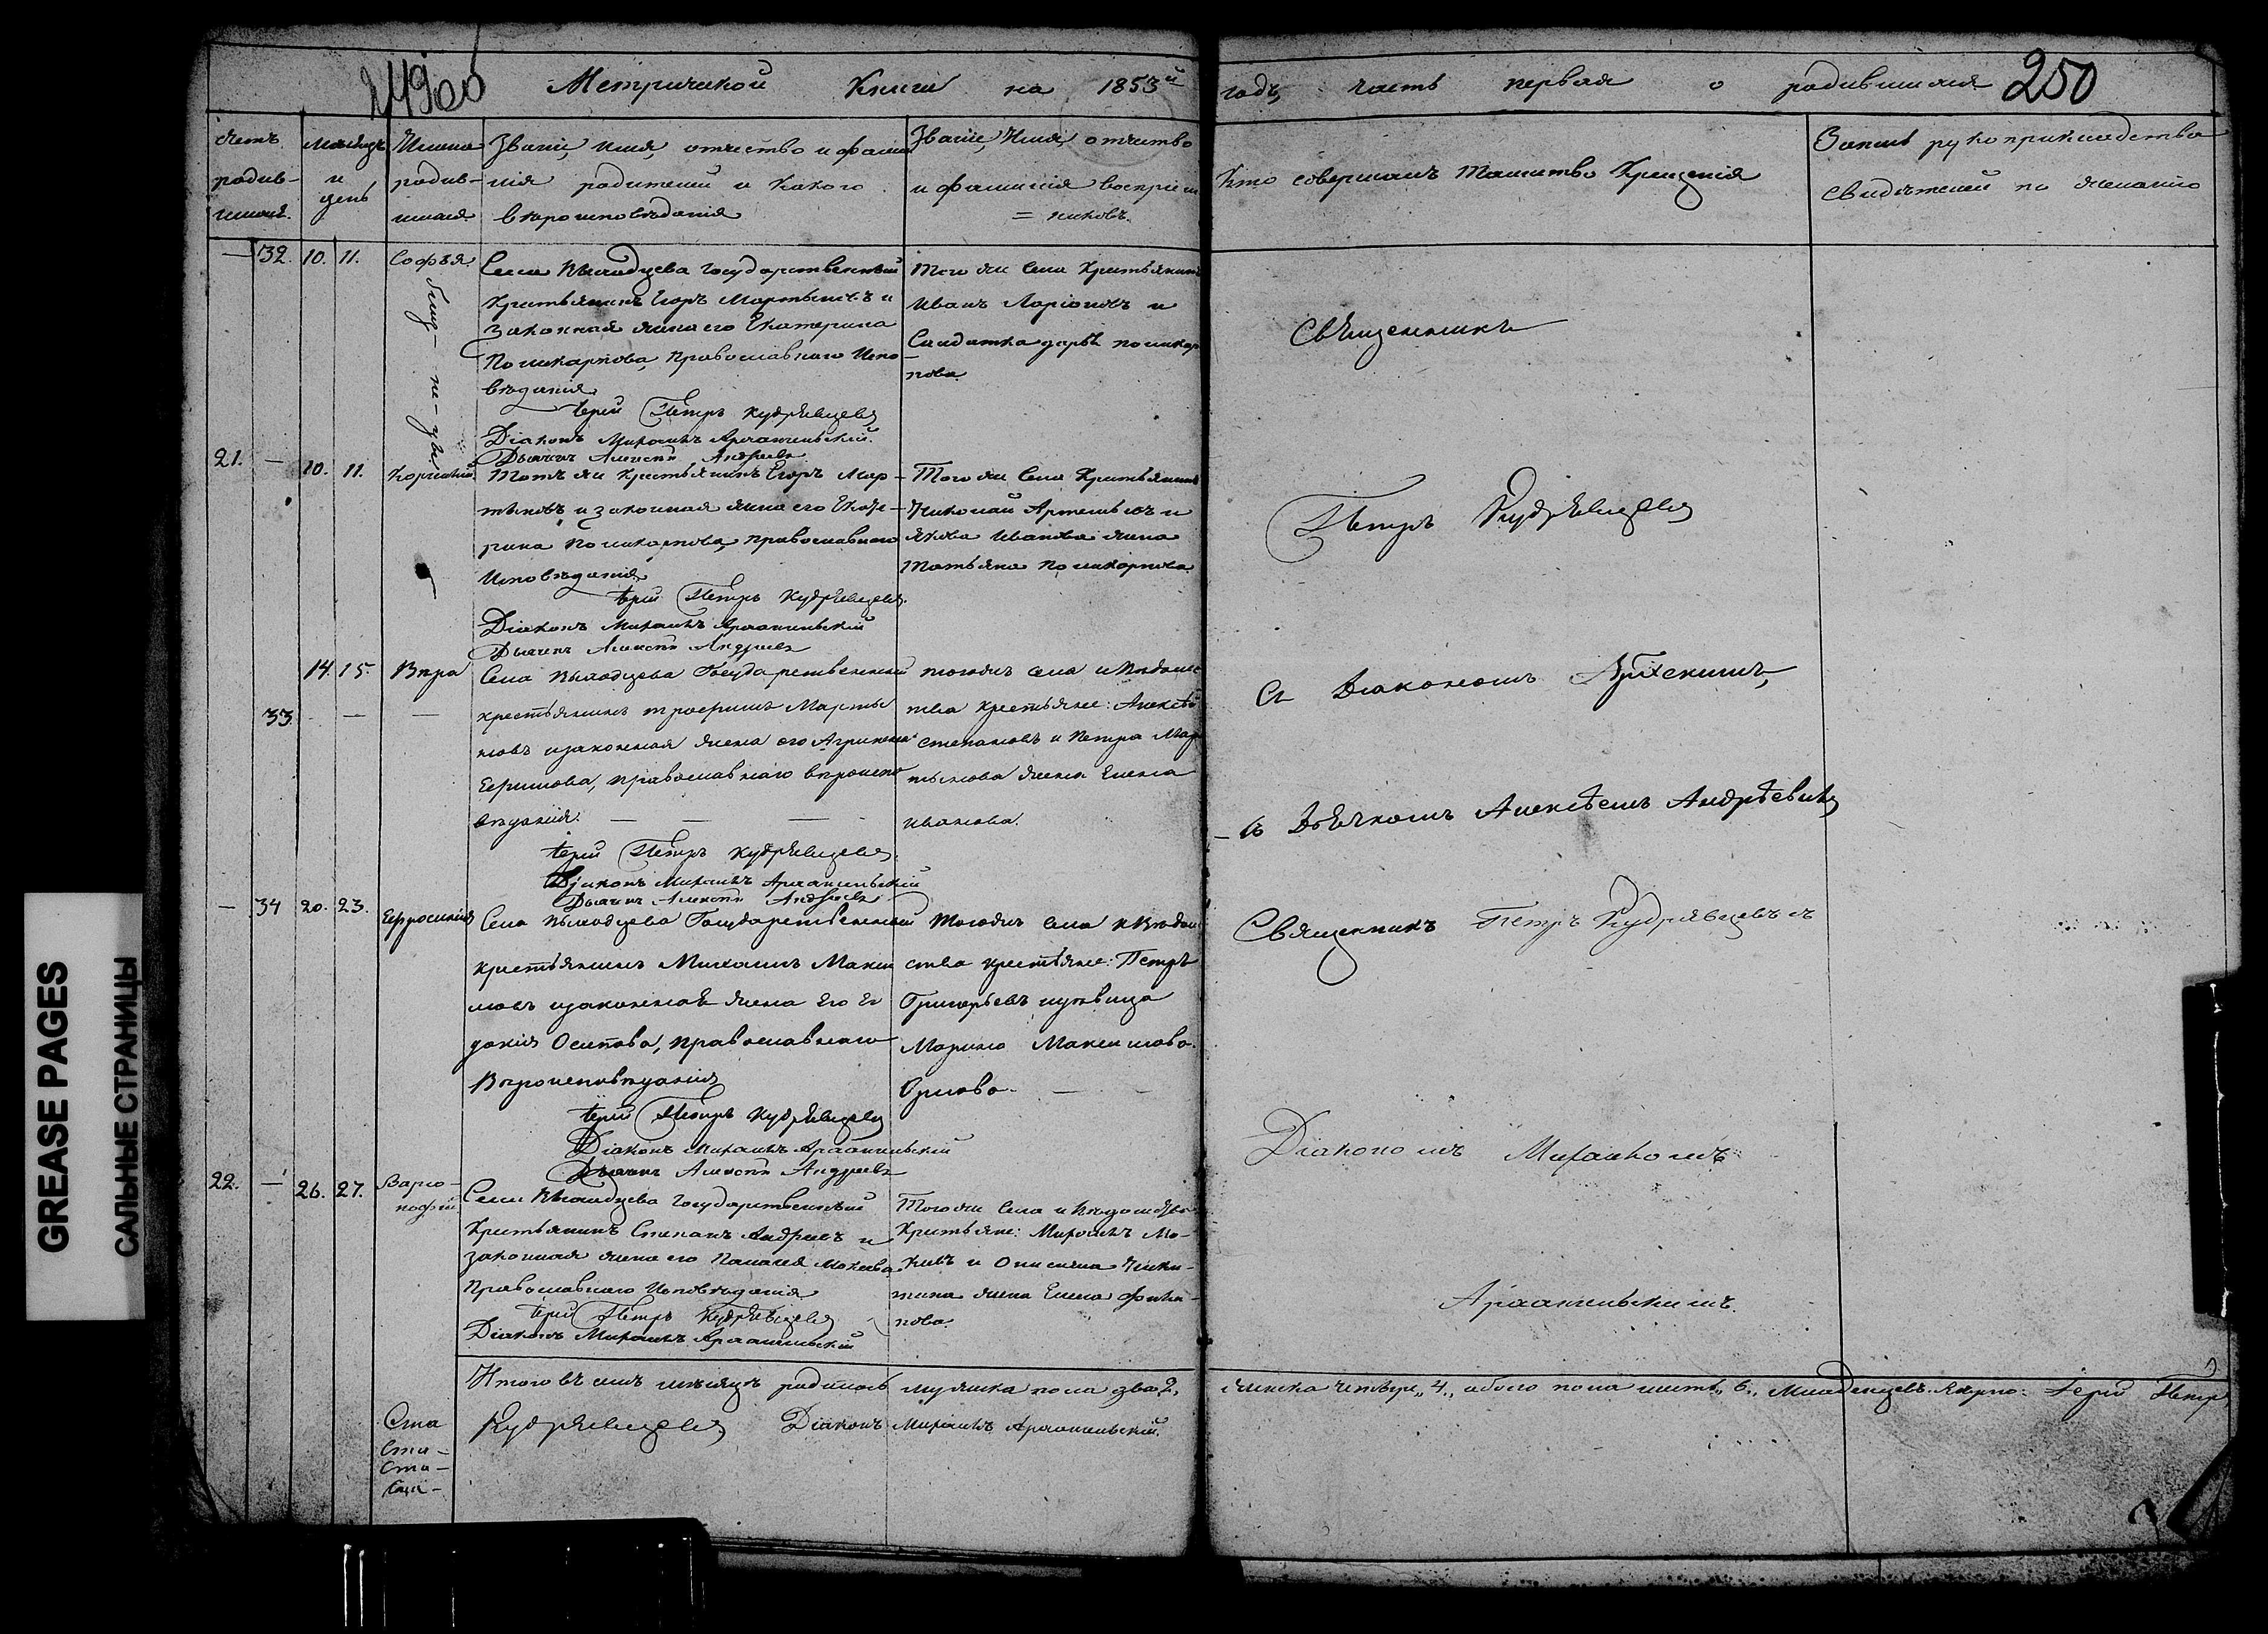 249об
Метрической Книги на 1853й
годъ, часть первая о родившихся
250
Счетъ родив-шихся.
Месяцъ и день
Имена родив-шихся.
Званіе, имя, отчество и фами
лія родителей и какого
вероисповѣданія
Званіе, Имя, отчество
и фамилія воспріем
= никовъ.
Кто совершалъ Таинство Крещенія
Запись рукоприкладства
Свидѣтелей по желанію
— 32. 10. 11. Софья.
близ- не- цы.
Села Выходцева Государственный
Крестьянинъ Егоръ Мартыновъ и
законная жена его Екатерина
Поликарпова, Православнаго Испо
вѣданія
Іерей Петръ Кудрявцевъ
Діаконъ Михаилъ Архангельскій.
Дьячекъ Алексѣй Андреевъ
Того же Села Крестьянинъ
Иванъ Ларіоновъ и
Солдатка Дарья Поликар-
пова.
Священникъ
21. — 10. 11. Корнилий.
Тотъ же Крестьянинъ Егоръ Мар-
тыновъ и законная жена его Екате-
рина Поликарпова, православнаго
Исповѣданія
Іерей Петръ Кудрявцевъ.
Діаконъ Михаилъ Архангельскій
Дьячекъ Алексѣй Андреевъ
Того же Села Крестьянинъ
Николай Артемьевъ и
Якова Иванова жена
Татьяна Поликарпова.
Петръ Кудрявцевъ
33 14. 15. Вѣра
Села Выходцева Государственный
крестьянинъ Трофимъ Марты
новъ изаконная жена его Агрипена
Ефимова, православнаго вѣроиспо
вѣданія. — — — —
Іерей Петръ Кудрявцевъ.
Діаконъ Михаилъ Архангельскій
Дьячекъ Алексѣй Андреевъ
тогожъ села и Вѣдомс
тва крестьяне: Алексѣй
Степановъ и Петра Мар
тынова жена Елена
Иванова.
Съ Діакономъ
— съ Дьячкомъ Алексѣемъ Андрѣевымъ
— 34 20. 23. Ефросинія
Села Выходцева Государственный
крестьянинъ Михаилъ Макси
мовъ изаконная жена Его Ев
докія Осипова, православнаго
Вѣроисповѣданія
Іерей Петръ Кудрявцевъ
Діаконъ Михаилъ Архангельскій
Дьячекъ Алексѣй Андреевъ
Тогожъ села и Вѣдом
ства крестьяне: Петръ
Григорьевъ идѣвица
Марина Максимова.
Орлова. — —
Священникъ Петръ Кудрявцевъ съ
Діакономъ Михаиломъ
Архангельскимъ.
22. — 26. 27. Варло-
Села Выходцева Государственный
Крестьянинъ Степанъ Андреевъ и
законная жена его Палагея Мокеева
Православнаго Исповѣданія
Іерей Петръ Кудрявцевъ
Діаконъ Михаилъ Архангельскій
Того же Села и Вѣдомства
Крестьяне: Михаилъ Мо-
кеевъ и Онисима Ники-
тина жена Елена
Итого въ семъ мѣсяцѣ родилось мужска пола два 2,
женска четыре „4„ обоего пола шесть „6„ Младенцевъ. Іерей Петръ
Кудрявцевъ Діаконъ Михаилъ Архангельскій.
GREASE PAGES
САЛЬНЫЕ СТРАНИЦЫ